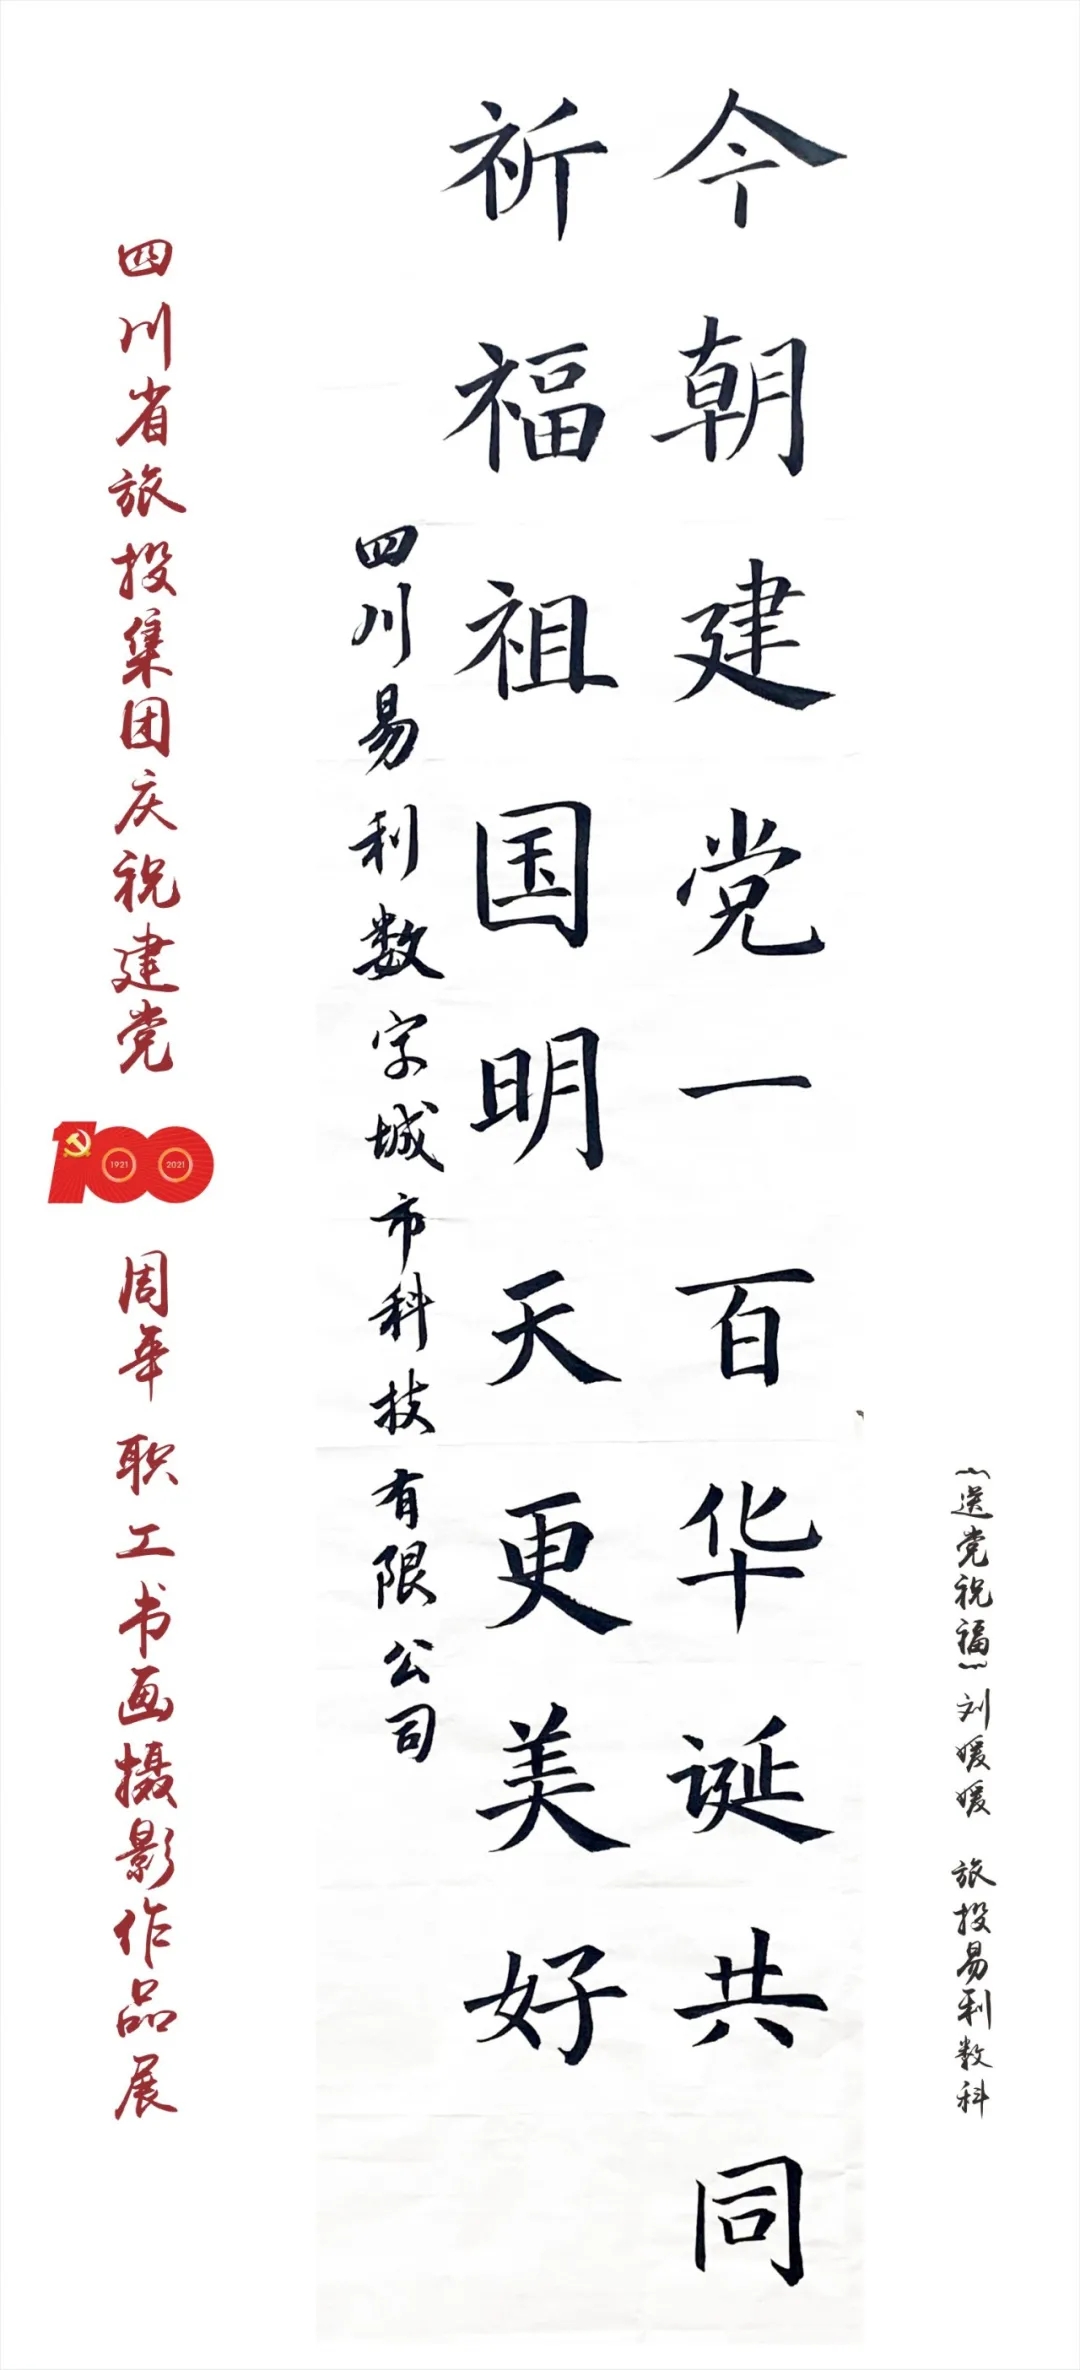 今朝建党一百华诞共同
祈福祖国明天更美好
四川易利数字城市科技有限公司
《送党祝福》刘媛媛 旅投易利数科
四川省旅投集团庆祝建党
100
1921
2021
周年职工书画摄影作品展